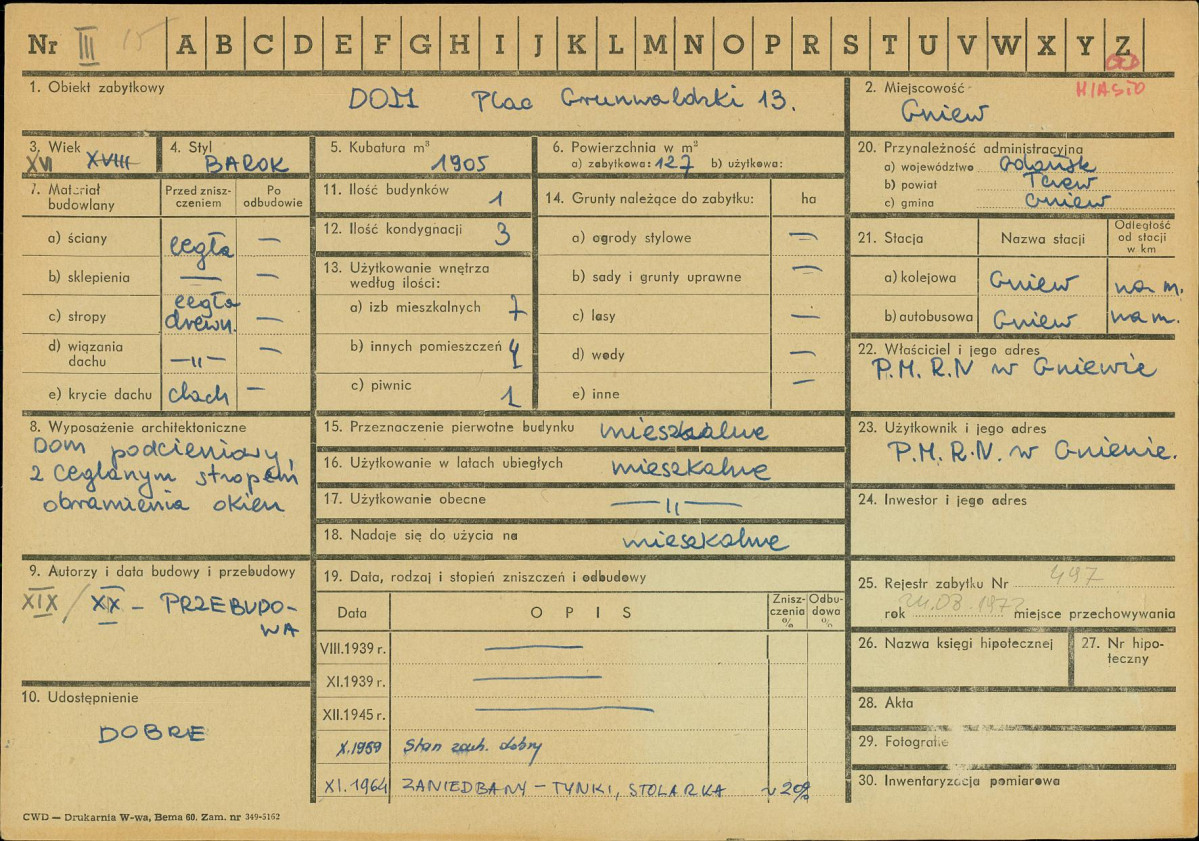 Nr III 15 A B C D E F G H I J K L M N O P R S T U V W X Y Z
MIASTO
1. Obiekt zabytkowy DOM Plac Grunwaldzki 13.
2. Miejscowość
Gniew
3. Wiek
XVI XVIII
4. Styl
BAROK
5. Kubatura m³
1905
6. Powierzchnia w m²
a) zabytkowa: 127 b) użytkowa:
20. Przynależność administracyjna
a) województwo Gdańsk
b) powiat Tczew
c) gmina Gniew
7. Materiał budowlany
Przed zniszczeniem
Po odbudowie
a) ściany cegła —
b) sklepienia — —
c) stropy cegła drewn. —
d) wiązania dachu —"— —
e) krycie dachu dach —
11. Ilość budynków 1
12. Ilość kondygnacji 3
13. Użytkowanie wnętrza
według ilości:
a) izb mieszkalnych 7
b) innych pomieszczeń
c) piwnic 1
14. Grunty należące do zabytku: ha
a) ogrody stylowe —
b) sady i grunty uprawne —
c) lasy —
d) wody —
e) inne —
21. Stacja Nazwa stacji Odległość od stacji w km
a) kolejowa Gniew na m.
b) autobusowa Gniew na m.
22. Właściciel i jego adres
P.M.R.N w Gniewie
8. Wyposażenie architektoniczne
Dom podcieniowy
z ceglanym stropem
obramienia okien
15. Przeznaczenie pierwotne budynku mieszkalne
16. Użytkowanie w latach ubiegłych mieszkalne
17. Użytkowanie obecne —"—
18. Nadaje się do użycia na mieszkalne
23. Użytkownik i jego adres
P.M.R.N. w Gniewie.
24. Inwestor i jego adres
9. Autorzy i data budowy i przebudowy
XIX / XX – PRZEBUDO-
WA
10. Udostępnienie
DOBRE
19. Data, rodzaj i stopień zniszczeń i odbudowy
Data OPIS Zniszczenia % Odbudowa %
VIII.1939 r. —
XI.1939 r. —
XII.1945 r. —
X.1959 Stan zach. dobry
XI.1964 ZANIEDBANY – TYNKI, STOLARKA ~20%
25. Rejestr zabytku Nr 497
rok 24.08.1972 miejsce przechowywania
26. Nazwa księgi hipotecznej
27. Nr hipo-
teczny
28. Akta
29. Fotografie
30. Inwentaryzacja pomiarowa
CWD — Drukarnia W-wa, Bema 60. Zam. nr 349-5162